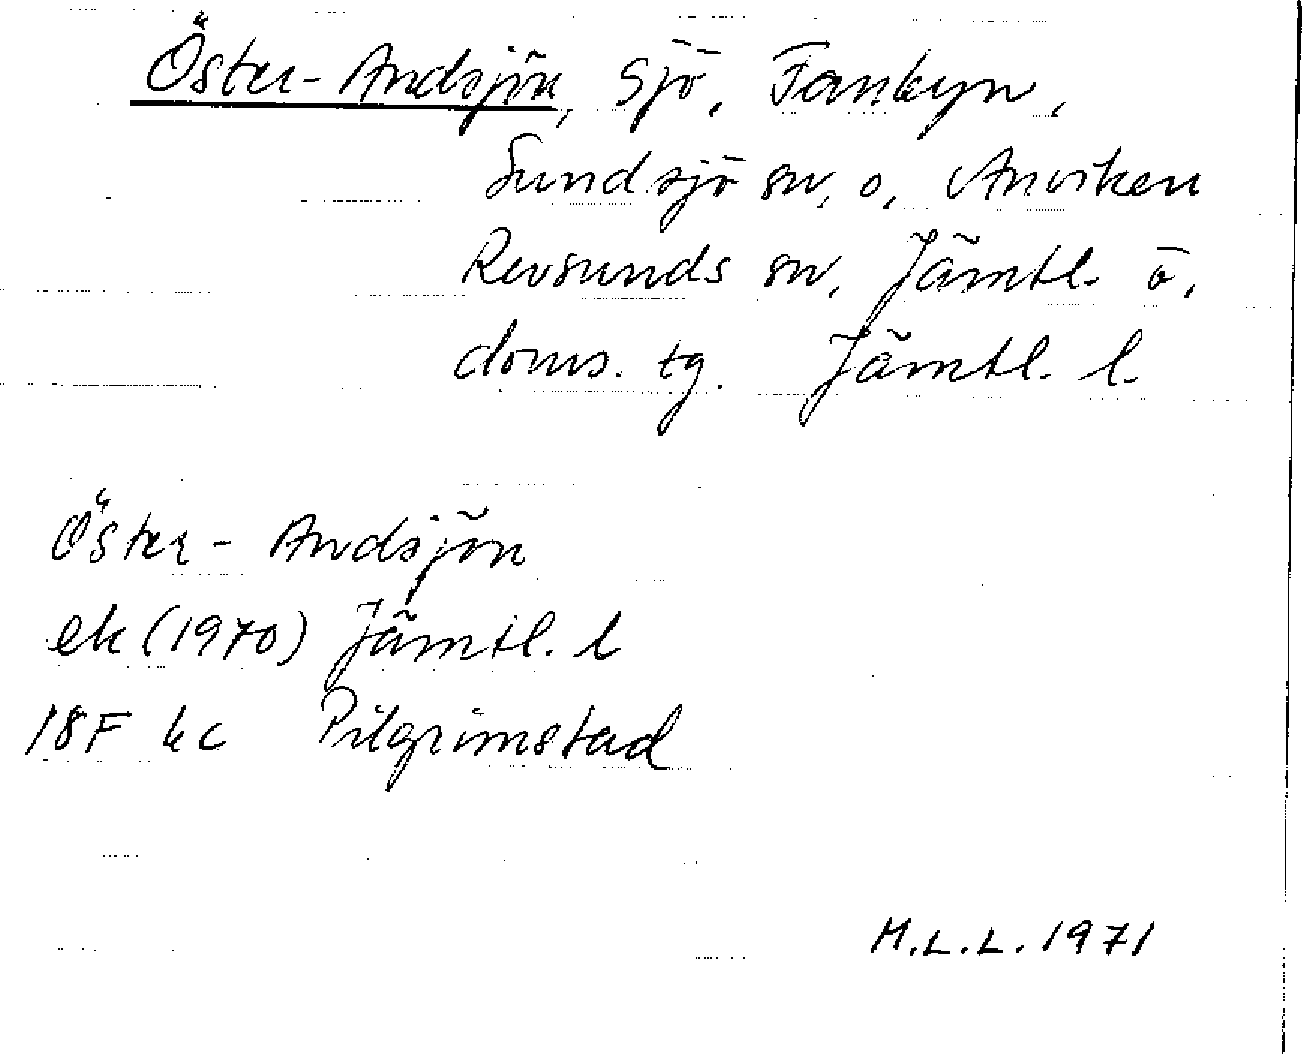 Öster-Andsjön, Sjö, Fanbyn,
Sundsjö sn, o, Anviken
Revsunds sn, Jämtl. ö,
doms. tg. Jämtl. l.
Öster-Andsjön
ek (1970) Jämtl. l
18F hc Pilgrimstad
M.L.L. 1971